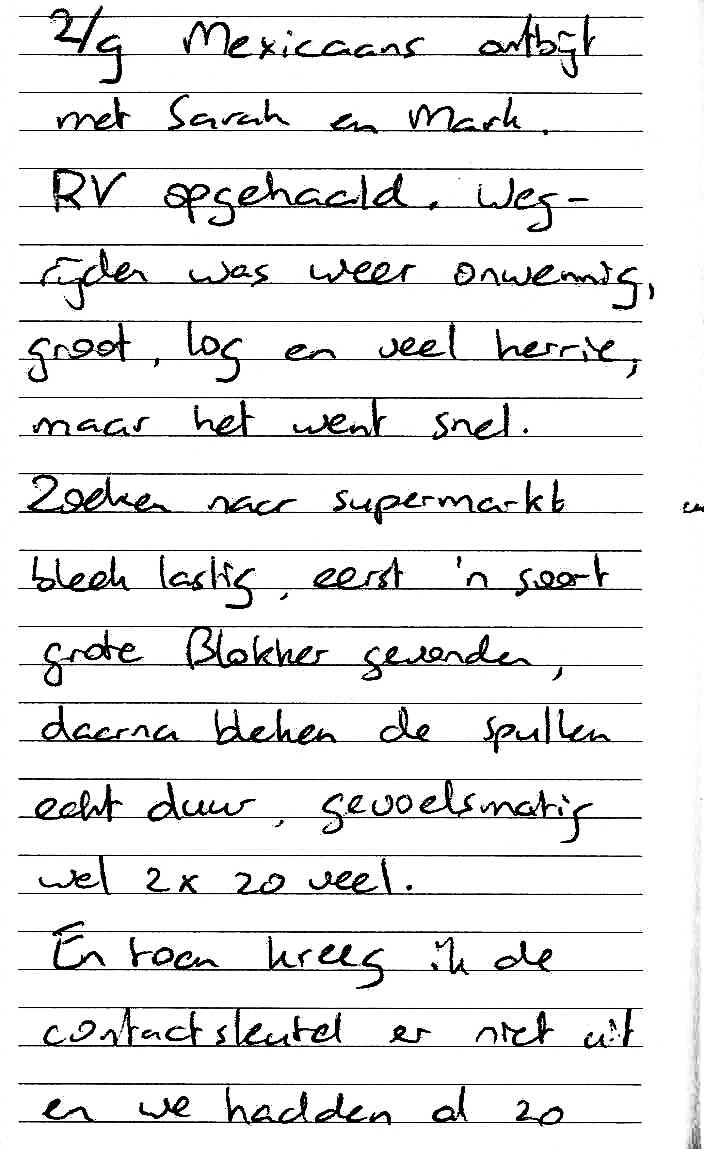 2/9 Mexicaans ontbijt
met Sarah en Mark.
RV opgehaald. Weg-
rijden was weer onwennig,
groot, log en veel herrie,
maar het went snel.
Zoeken naar supermarkt
bleek lastig, eerst 'n soort
grote Blokker gevonden,
daarna bleken de spullen
echt duur, gevoelsmatig
wel 2x zo veel.
En toen kreeg ik de
contactsleutel er niet uit
en we hadden al zo